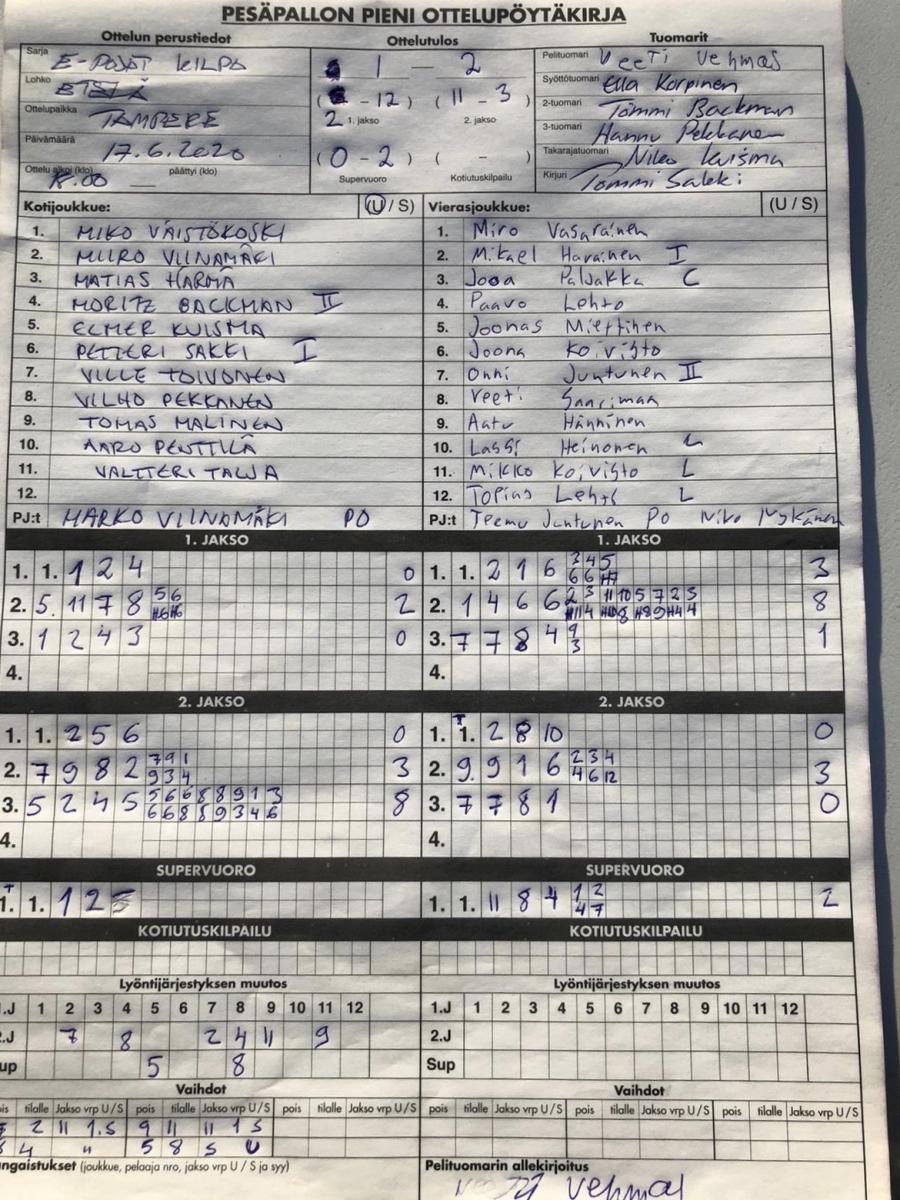 PESÄPALLON PIENI OTTELUPÖYTÄKIRJA
Ottelun perustiedot Ottelutulos Tuomarit
Sarja E-POJAT KILPA 1 — 2 Pelituomari Veeti Vehmas
Lohko ( - 12) (11 - 3) Syöttötuomari Ella Korpinen
Ottelupaikka TAMPERE 2 1. jakso 2. jakso 2-tuomari Tommi Backman
Päivämäärä 17.6.2020 (0 - 2) ( - ) 3-tuomari Hannu Pekkanen
Ottelu alkoi (klo) päättyi (klo) Supervuoro Kotiutuskilpailu Takarajatuomari Niko Kuisma
Kirjuri Tommi Sakki
Kotijoukkue: (U / S) Vierasjoukkue: (U / S)
1. MIKO VÄISTÖKOSKI 1. Miro Vasarainen
2. MIIRO VIINAMÄKI 2. Mikael Harainen I
3. MATIAS HARMÄ 3. Jooa Paljakka C
4. MORITZ BACKMAN II 4. Paavo Lehto
5. ELMER KUISMA 5. Joonas Miettinen
6. PETTERI SAKKI I 6. Joona Koivisto
7. VILLE TOIVONEN 7. Onni Juntunen II
8. VILHO PEKKANEN 8. Veeti Saarimaa
9. TOMAS MALINEN 9. Aatu Hänninen
10. AARO PENTTILÄ 10. Lassi Heinonen L
11. VALTTERI TALJA 11. Mikko Koivisto L
12. 12. Topias Lehto L
PJ:t MARKO VIINAMÄKI PO PJ:t Teemu Juntunen PO Niko
1. JAKSO 1. JAKSO
1. 1. 1 2 4 0 1. 1. 2 1 6 3 4 5 3
6 6
2. 5. 11 7 8 5 6 2 2. 1 4 6 6 2 3 11 10 5 7 2 3 8
3. 1 2 4 3 0 3. 7 7 8 4 9 1
3
4. 4.
2. JAKSO 2. JAKSO
1. 1. 2 5 6 0 1. T 1. 2 8 10 0
2. 7 9 8 2 7 9 1 3 2. 9. 9 1 6 2 3 4 3
9 3 4 4 6 12
3. 5 2 4 5 5 6 6 8 8 9 1 3 8 3. 7 7 8 1 0
6 6 8 8 9 3 4 6
4. 4.
SUPERVUORO SUPERVUORO
1. 1. 1 2 1. 1. 11 8 4 1 2 2
4 7
KOTIUTUSKILPAILU KOTIUTUSKILPAILU
Lyöntijärjestyksen muutos Lyöntijärjestyksen muutos
.J 1 2 3 4 5 6 7 8 9 10 11 12 1.J 1 2 3 4 5 6 7 8 9 10 11 12
.J 7 8 2 4 11 9 2.J
up 5 8 Sup
Vaihdot Vaihdot
is tilalle Jakso vrp U/S pois tilalle Jakso vrp U/S pois tilalle Jakso vrp U/S pois tilalle Jakso vrp U/S pois tilalle Jakso vrp U/S pois tilalle Jakso vrp U/S
2 11 1.S 9 11 11 1 S
4 " 5 8 S U
ngaistukset (joukkue, pelaaja nro, jakso vrp U / S ja syy) Pelituomarin allekirjoitus
Vehmas